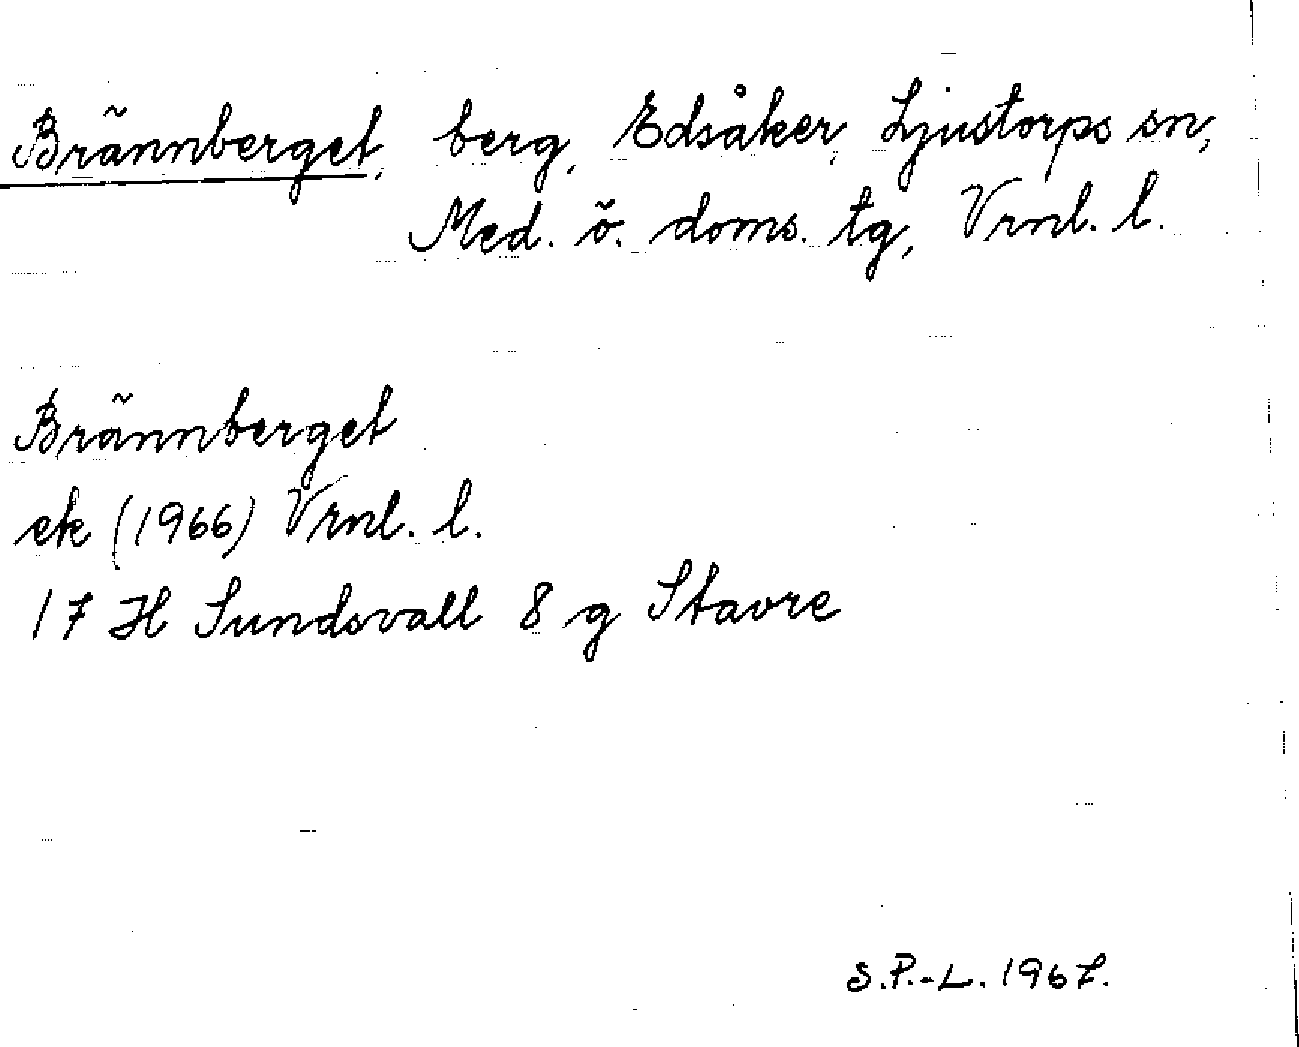 Brännberget, berg, Edsåker, Ljustorps sn,
Med. ö. doms. tg, Vrnl. l.
Brännberget
ek (1966) Vrnl. l.
17 H Sundsvall 8 g Stavre
S.P.-L. 1967.